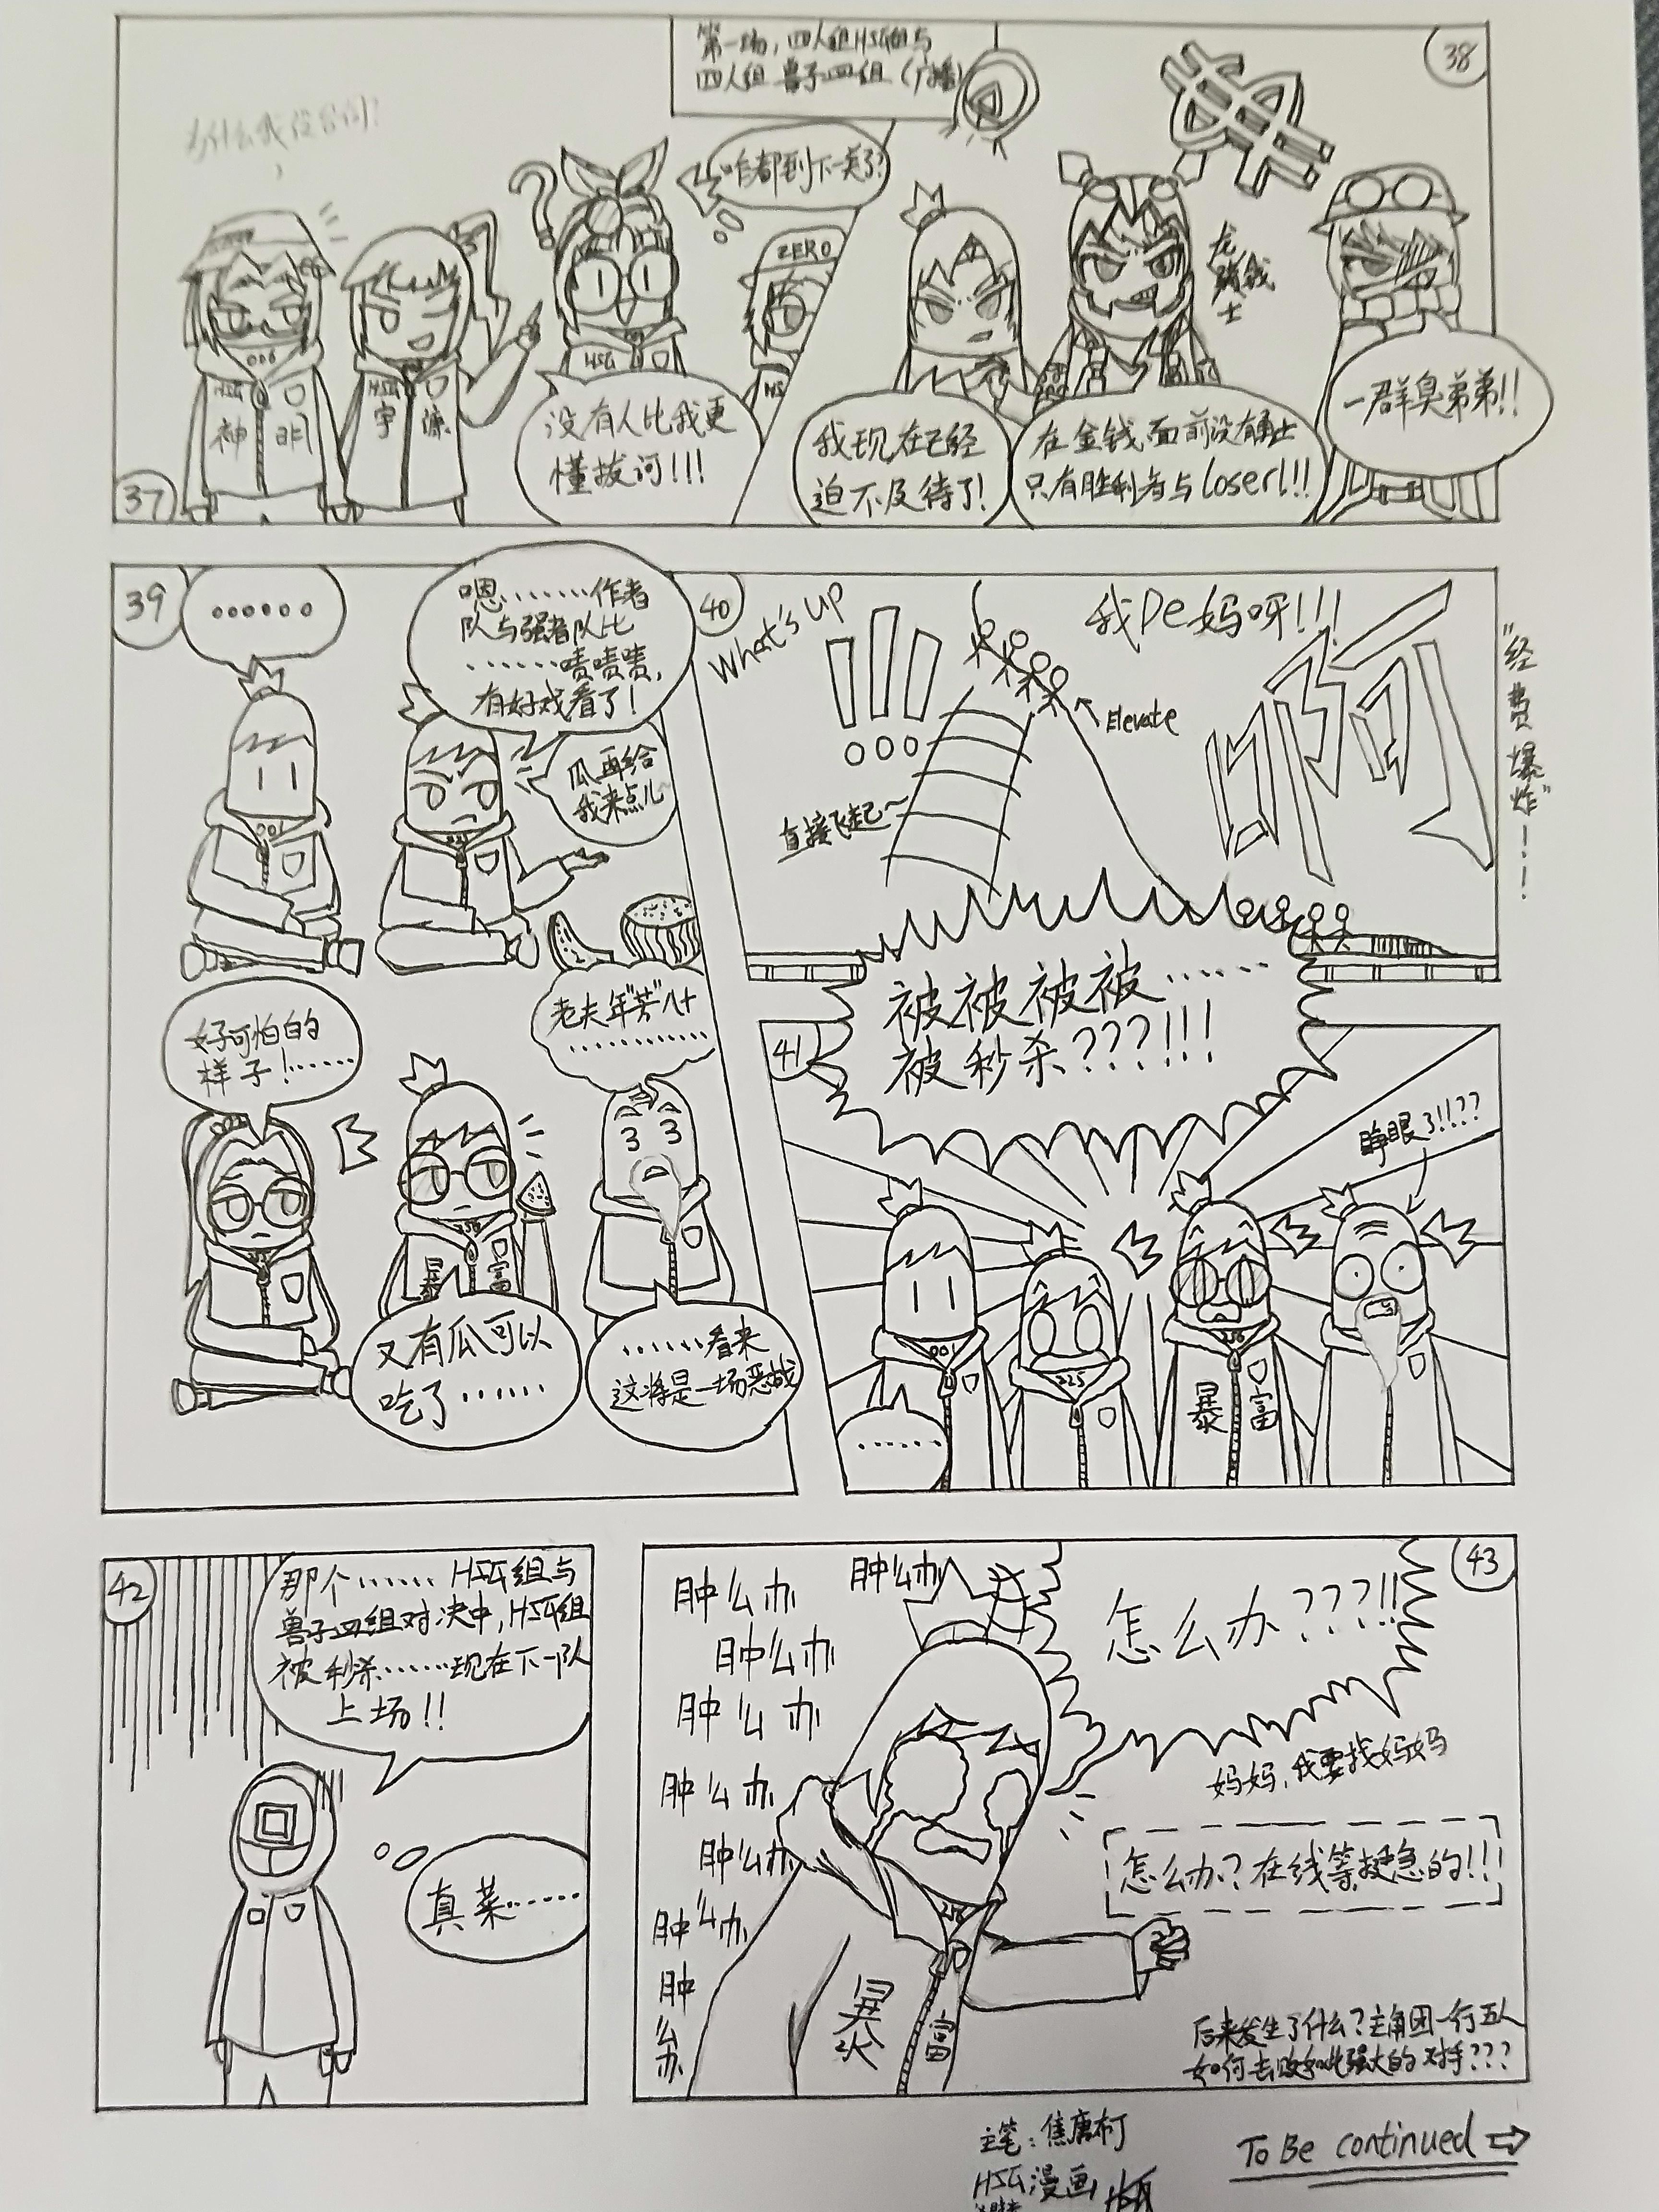 第一场，四人组HSG组与
四人组兽子四组（广播）
38
为什么我没台词？
咱都到下一关了？
ZERO
006
HSG
神 明
HSG
宇 源
HSG
HS
没有人比我更
懂拔河!!!
37
我现在已经
迫不及待了!
在金钱面前没有勇士
只有胜利者与loser!!!
一群臭弟弟!!
39
······
嗯········作者
队与强者队比
······啧啧啧，
有好戏看了!
瓜再给
我来点儿
001
好可怕的
样子!······
老夫年"芳"八十
暴 富
又有瓜可以
吃了······
······看来
这将是一场恶战
40
What's up
!!!
我De妈呀!!!
啊
Elevate
直接飞起~
"经费爆炸"!!!
41
被被被被······
被秒杀???!!!
睁眼了!!!??
001
225
暴 富
······
42
那个······HSG组与
兽子四组对决中，HSG组
被秒杀······现在下一队
上场!!
真菜······
43
肿么办
肿么办
肿么办
肿么办
肿么办
肿么办
肿么办
肿么办
怎么办???!!
妈妈，我要找妈妈
怎么办？在线等挺急的!!!
暴 富
后来发生了什么？主角团一行五人
如何去败如此强大的对手???
主笔：焦唐布丁
HSG漫画
To Be continued